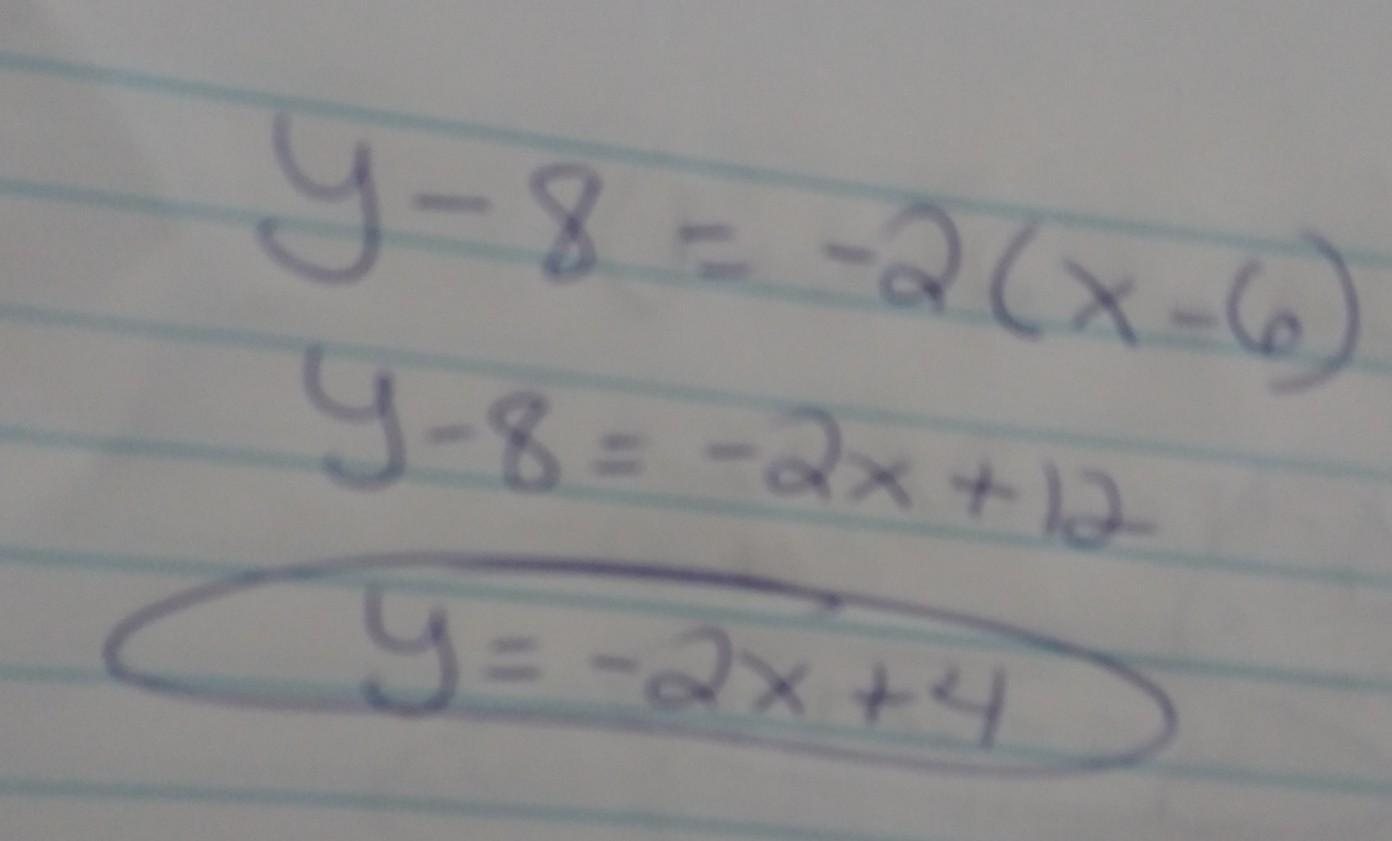 y - 8 = -2(x - 6)
y - 8 = -2x + 12
y = -2x + 4